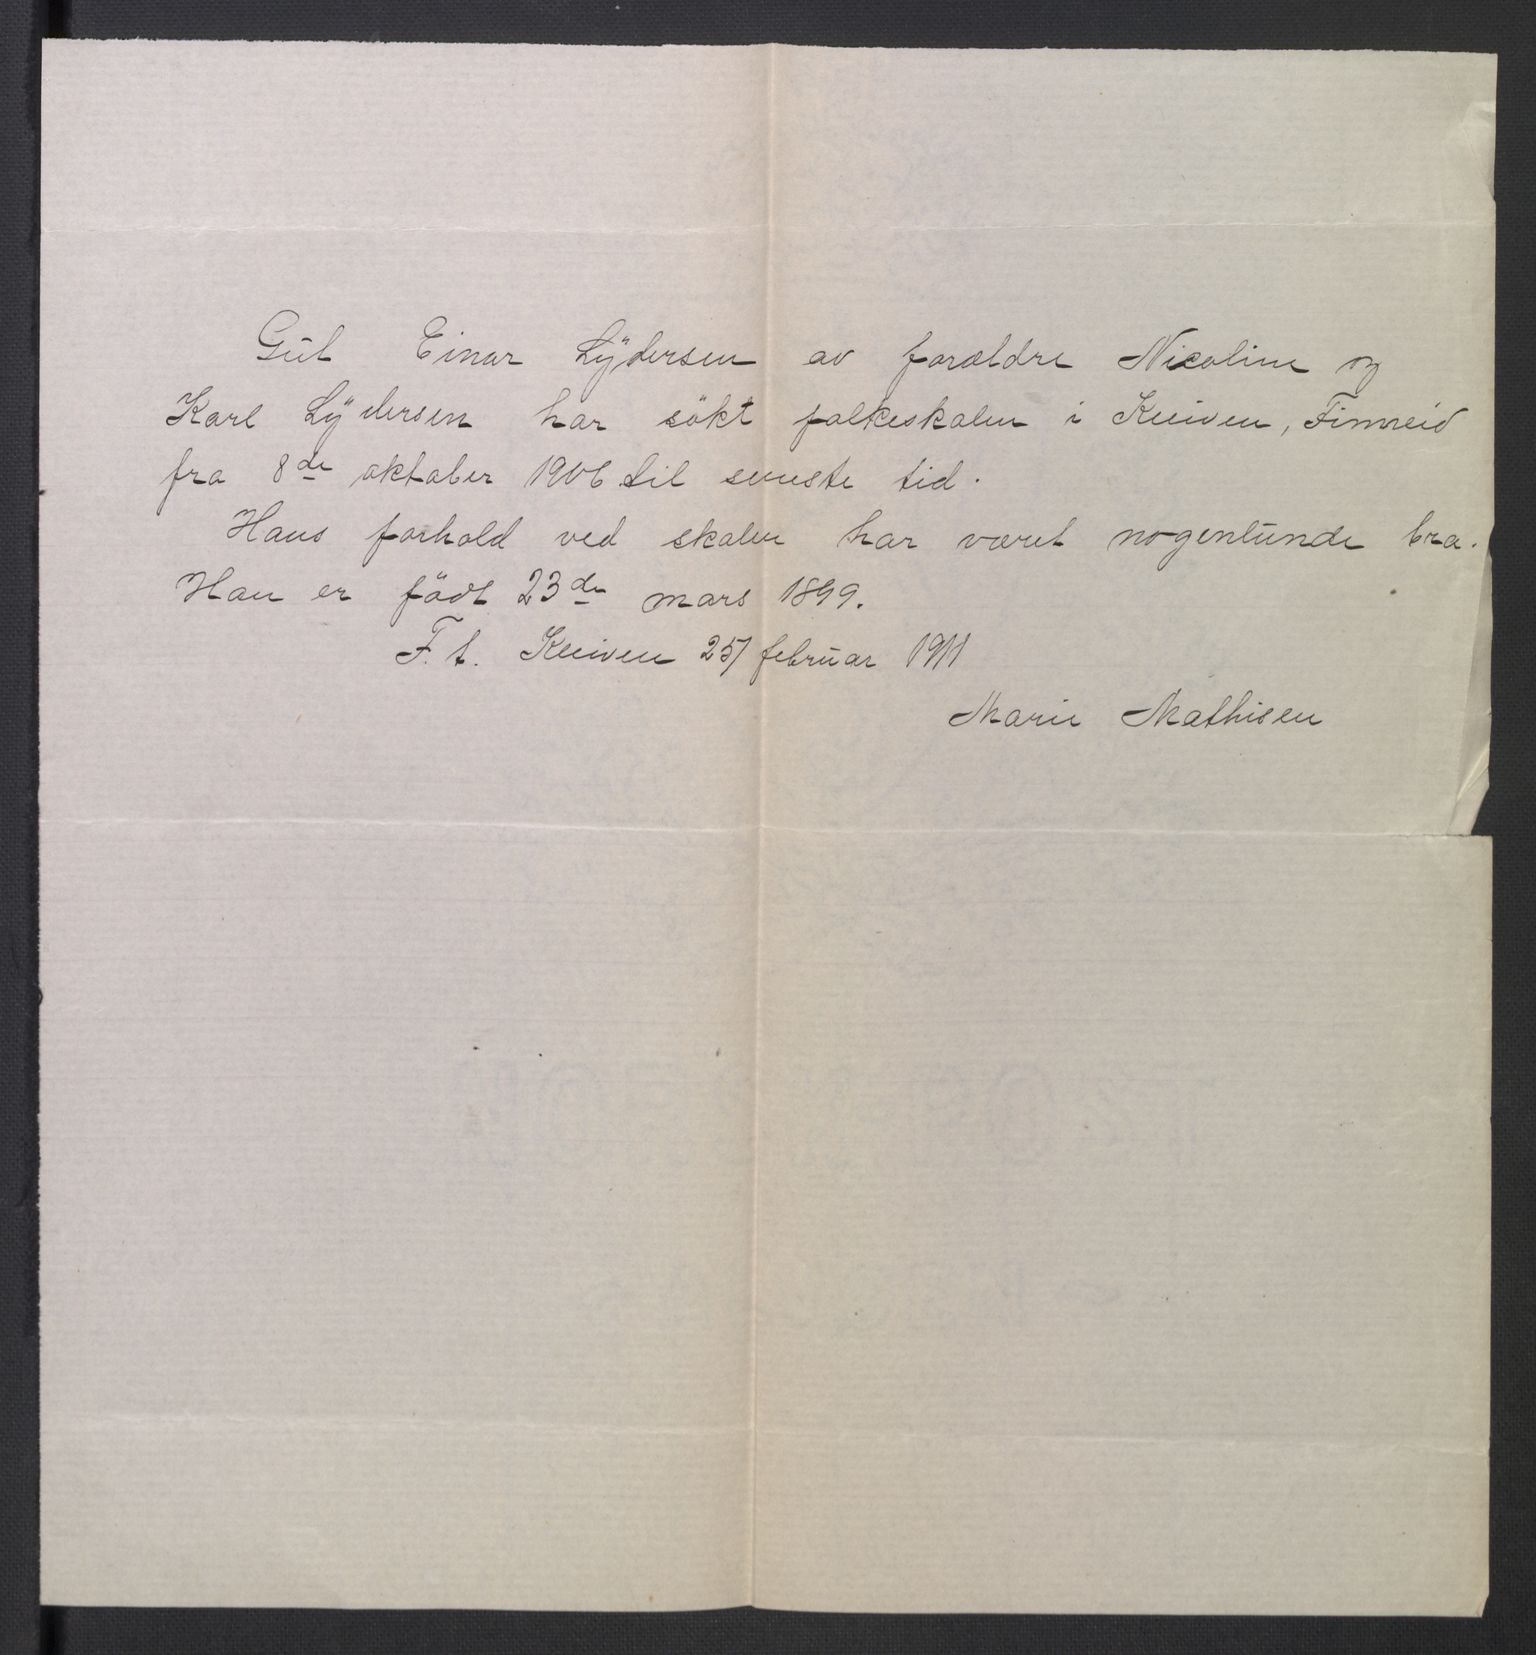 Gut Einar Lÿdersen av forældre Nicoline og
Karl Lÿdersen har søkt folkeskolen i Kniven, Finneid
fra 8de oktober 1906 til seneste tid.
Hans forhold ved skolen har været nogenlunde bra.
Han er født 23de mars 1899.
F. t. Kniven 25/ februar 1911
Marie Mathisen